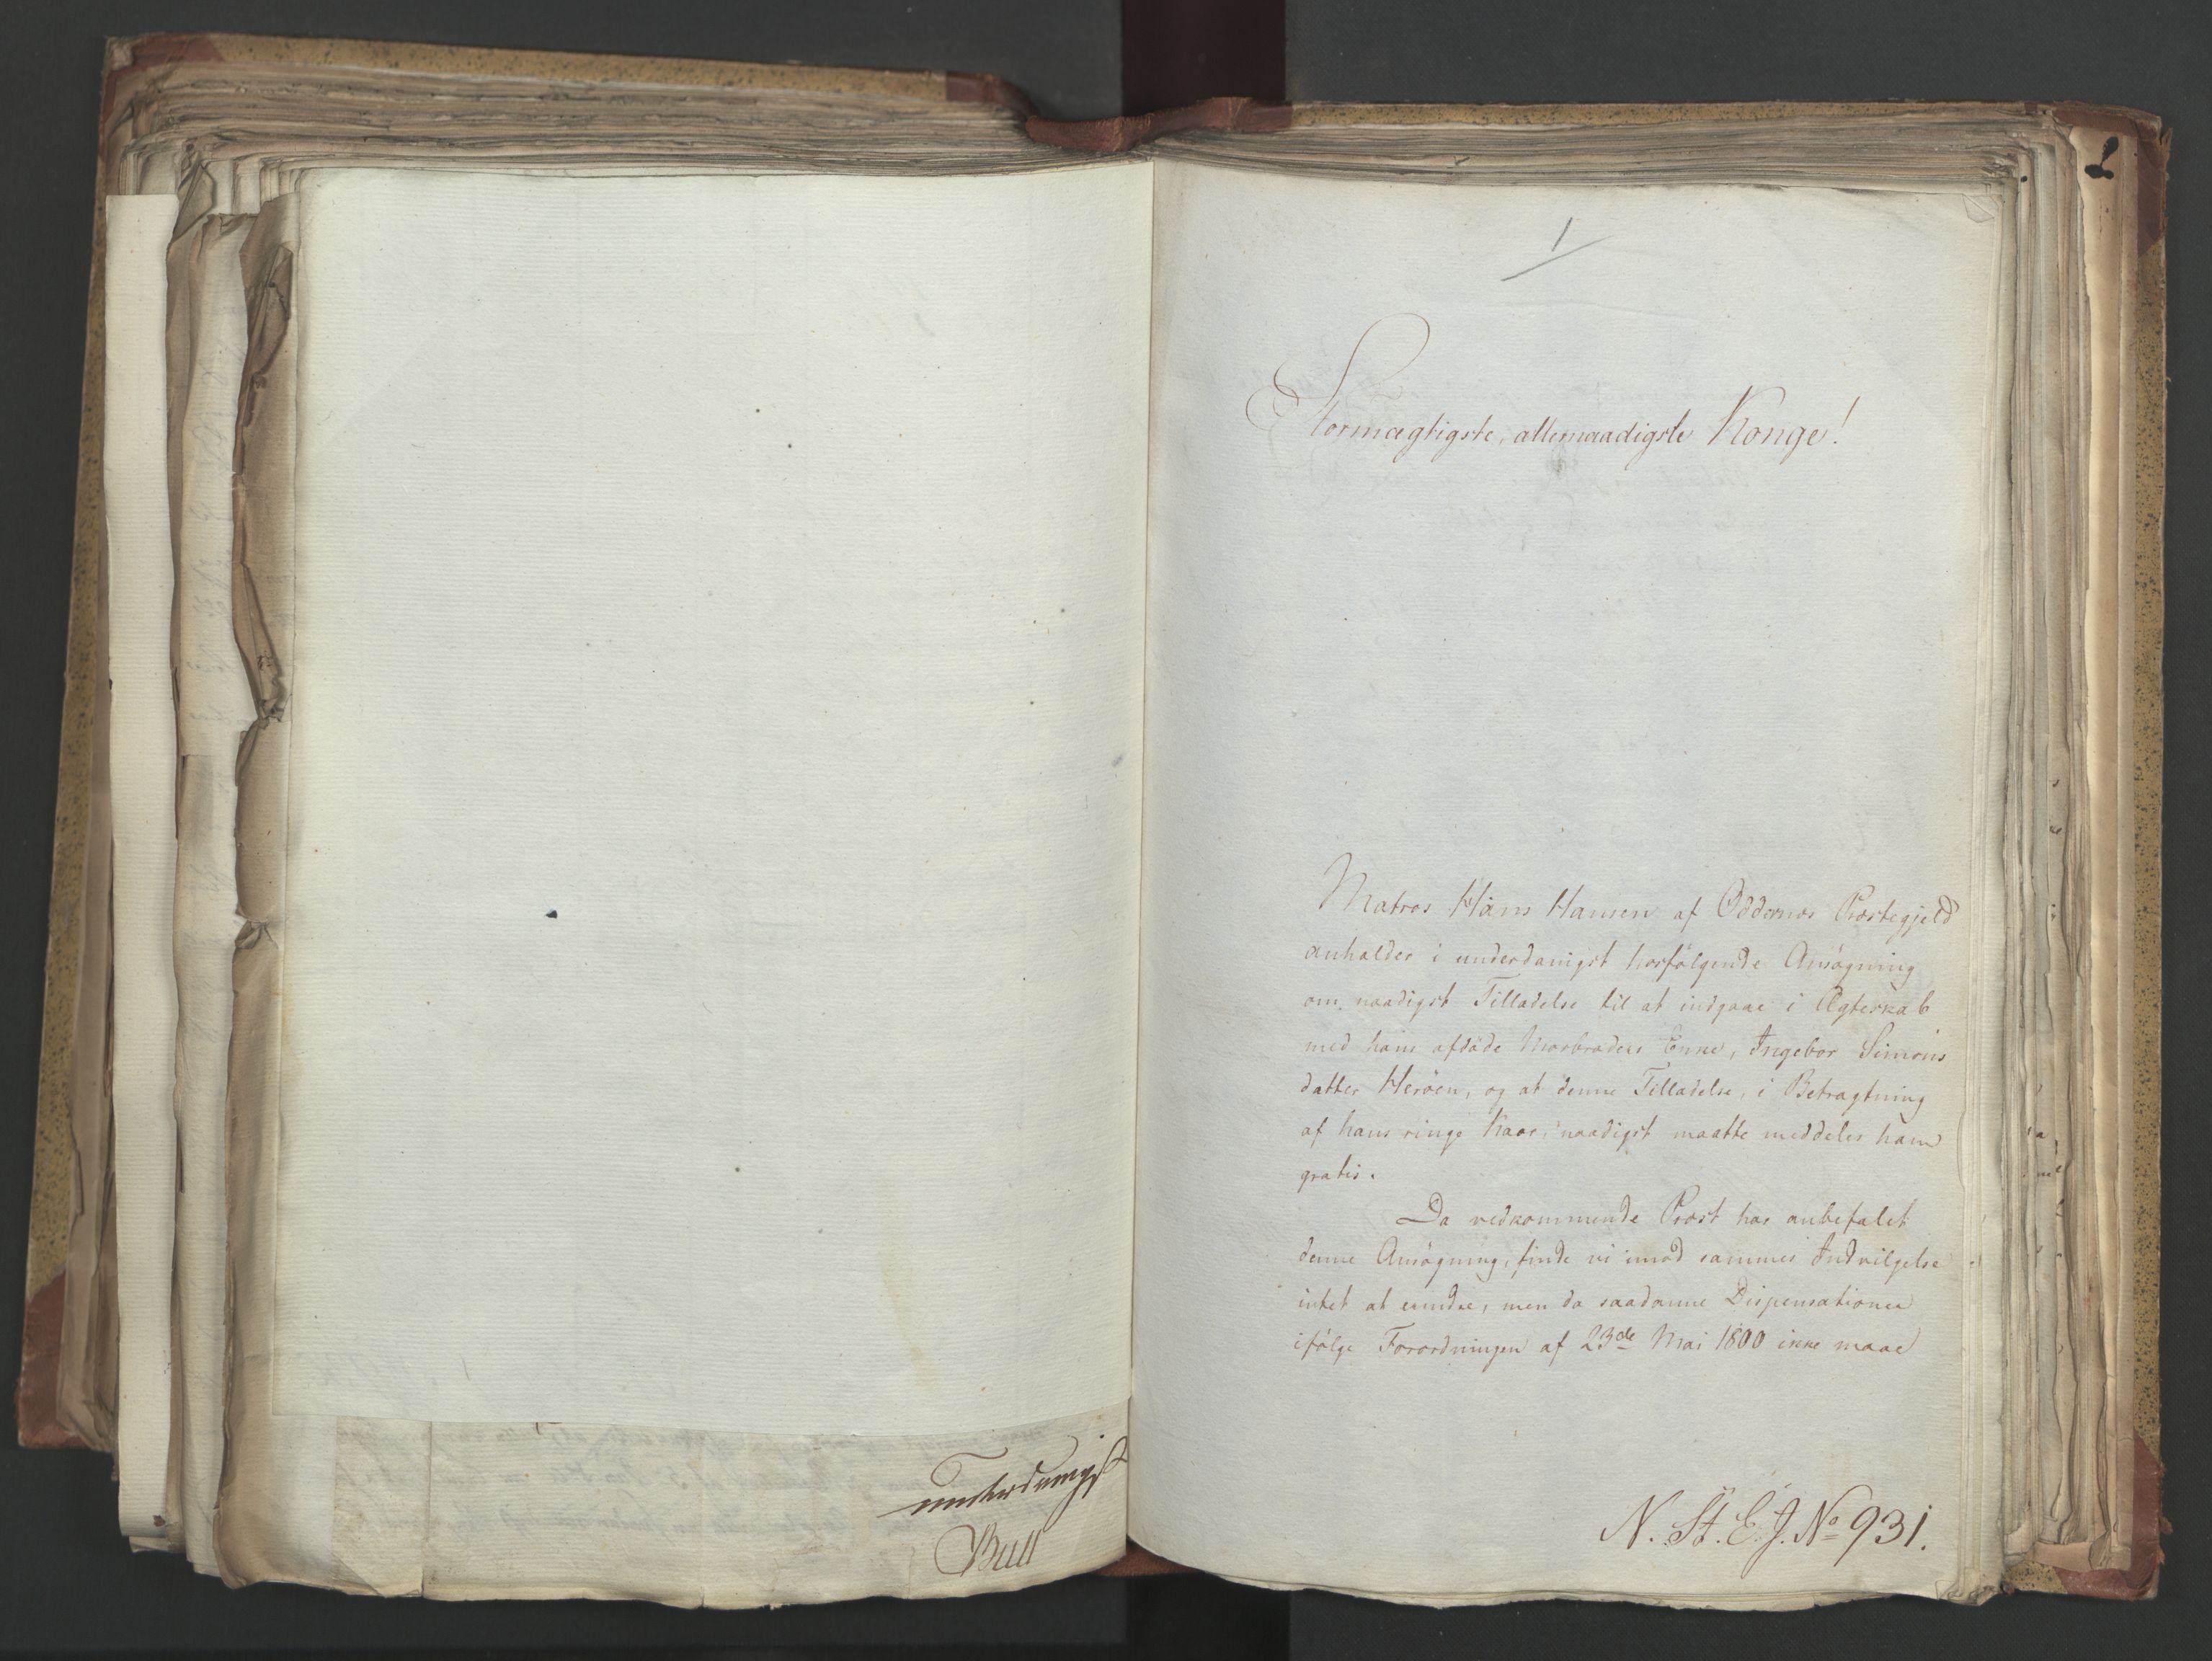 underdanigst
Bull
1
Stormægtigste, allernaadigste Konge!
Matros Hans Hansen af Oddernes Præstegjeld
anholder i underdanigst hosfølgende Ansøgning
om naadigst Tilladelse til at indgaae i Ægteskab
med hans afdøde Morbroders Enke, Ingebor Simons
datter Herøen, og at denne Tilladelse, i Betragtning
af hans ringe Kaar, naadigst maatte meddeles ham
gratis.
Da vedkommende Provst har anbefalet
denne Ansøgning, finde vi imod sammes Indvilgelse
intet at erindre, men da saadanne Dispensationer
ifølge Forordningen af 23de Mai 1800 ikke maae
N. St. E. J. No 931.